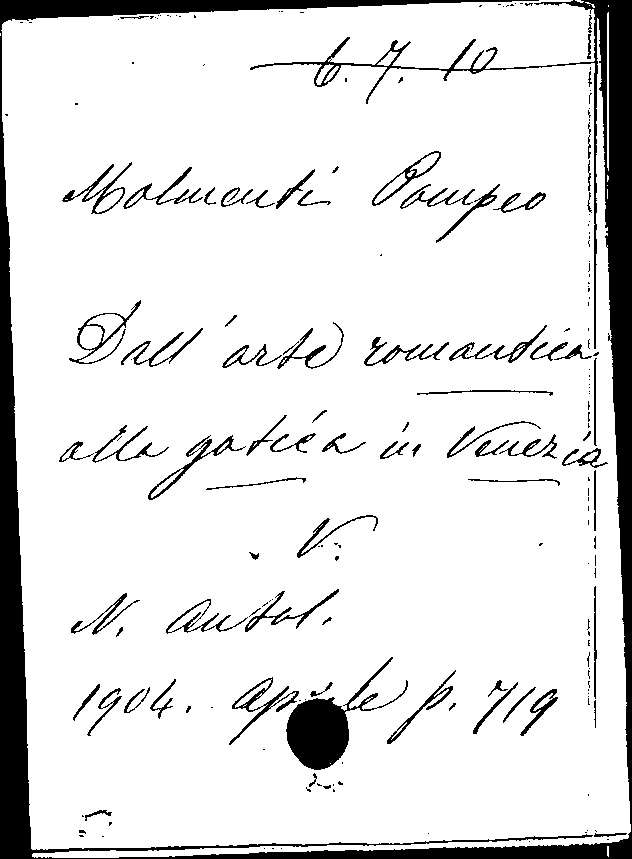 6.7.10
Molmenti Pompeo
Dall'arte romantica
alla gotica in Venezia
V.
N. Antol.
1904. Aprile p. 719